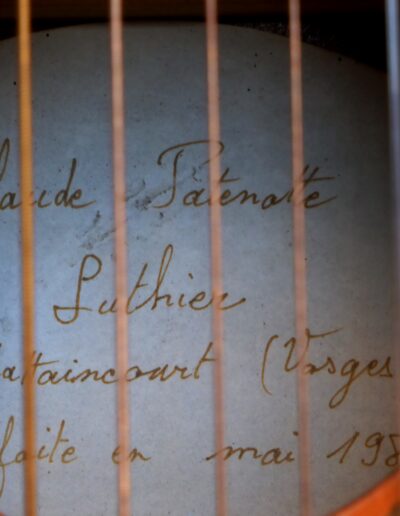 laude Patenotte
Luthier
attaincourt (Vosges
faite en mai 198